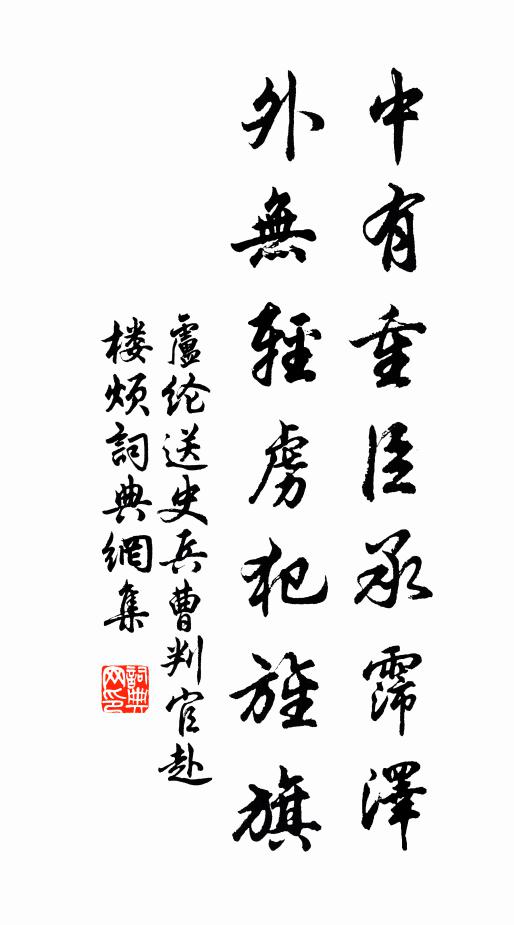 中有重臣承霈澤
外無輕虜犯旌旗
盧纶送史兵曹判官赴
楼烦詞典網集
詞典网印